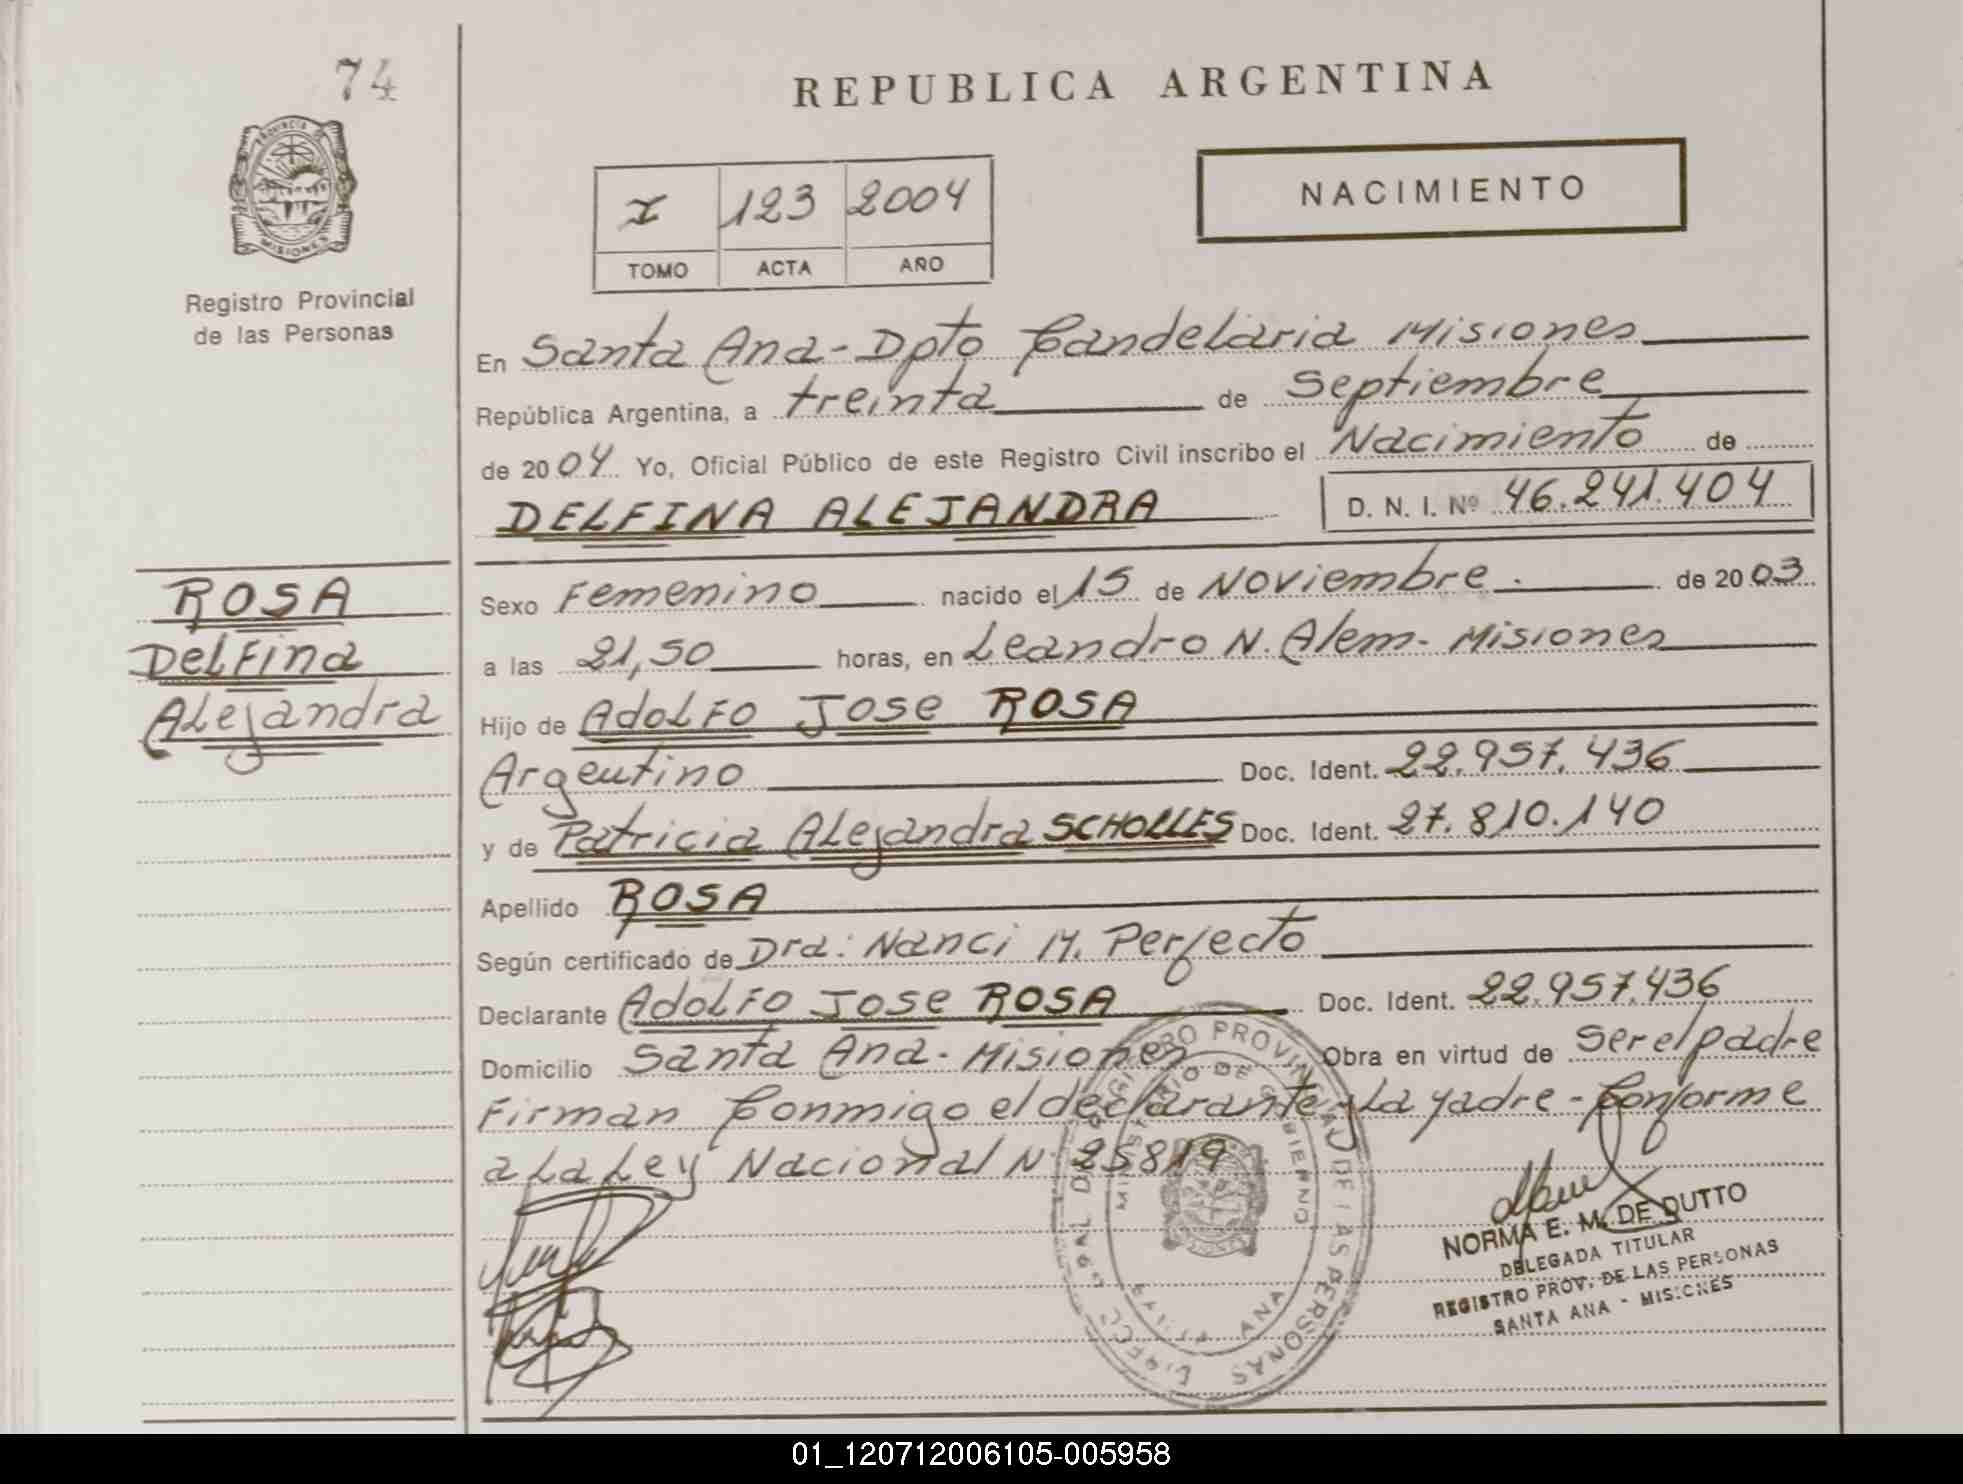 74
REPUBLICA ARGENTINA
PROVINCIA DE
MISIONES
Registro Provincial
de las Personas
NACIMIENTO
I 123 2004
TOMO ACTA AÑO
En Santa Ana - Dpto Candelaria Misiones
República Argentina, a treinta de Septiembre
de 2004 Yo, Oficial Público de este Registro Civil inscribo el Nacimiento de
DELFINA ALEJANDRA D. N. I. Nº 46.241.404
ROSA
Delfina
Alejandra
Sexo Femenino nacido el 15 de Noviembre. de 2003
a las 21,50 horas, en Leandro N. Alem - Misiones
Hijo de Adolfo Jose ROSA
Argentino Doc. Ident. 22.957.436
y de Patricia Alejandra SCHOLLES Doc. Ident. 27.810.140
Apellido ROSA
Según certificado de Dra: Nanci M. Perfecto
Declarante Adolfo Jose ROSA Doc. Ident. 22.957.436
Domicilio Santa Ana - Misiones Obra en virtud de ser el padre
Firman Conmigo el declarante y La yadre - Conforme
a La Ley Nacional N. 25819
REGISTRO PROVINCIAL DE LAS PERSONAS
MINISTERIO DE GOBIERNO
ANA
NORMA E. M. DE DUTTO
DELEGADA TITULAR
REGISTRO PROV. DE LAS PERSONAS
SANTA ANA - MISIONES
01_120712006105-005958